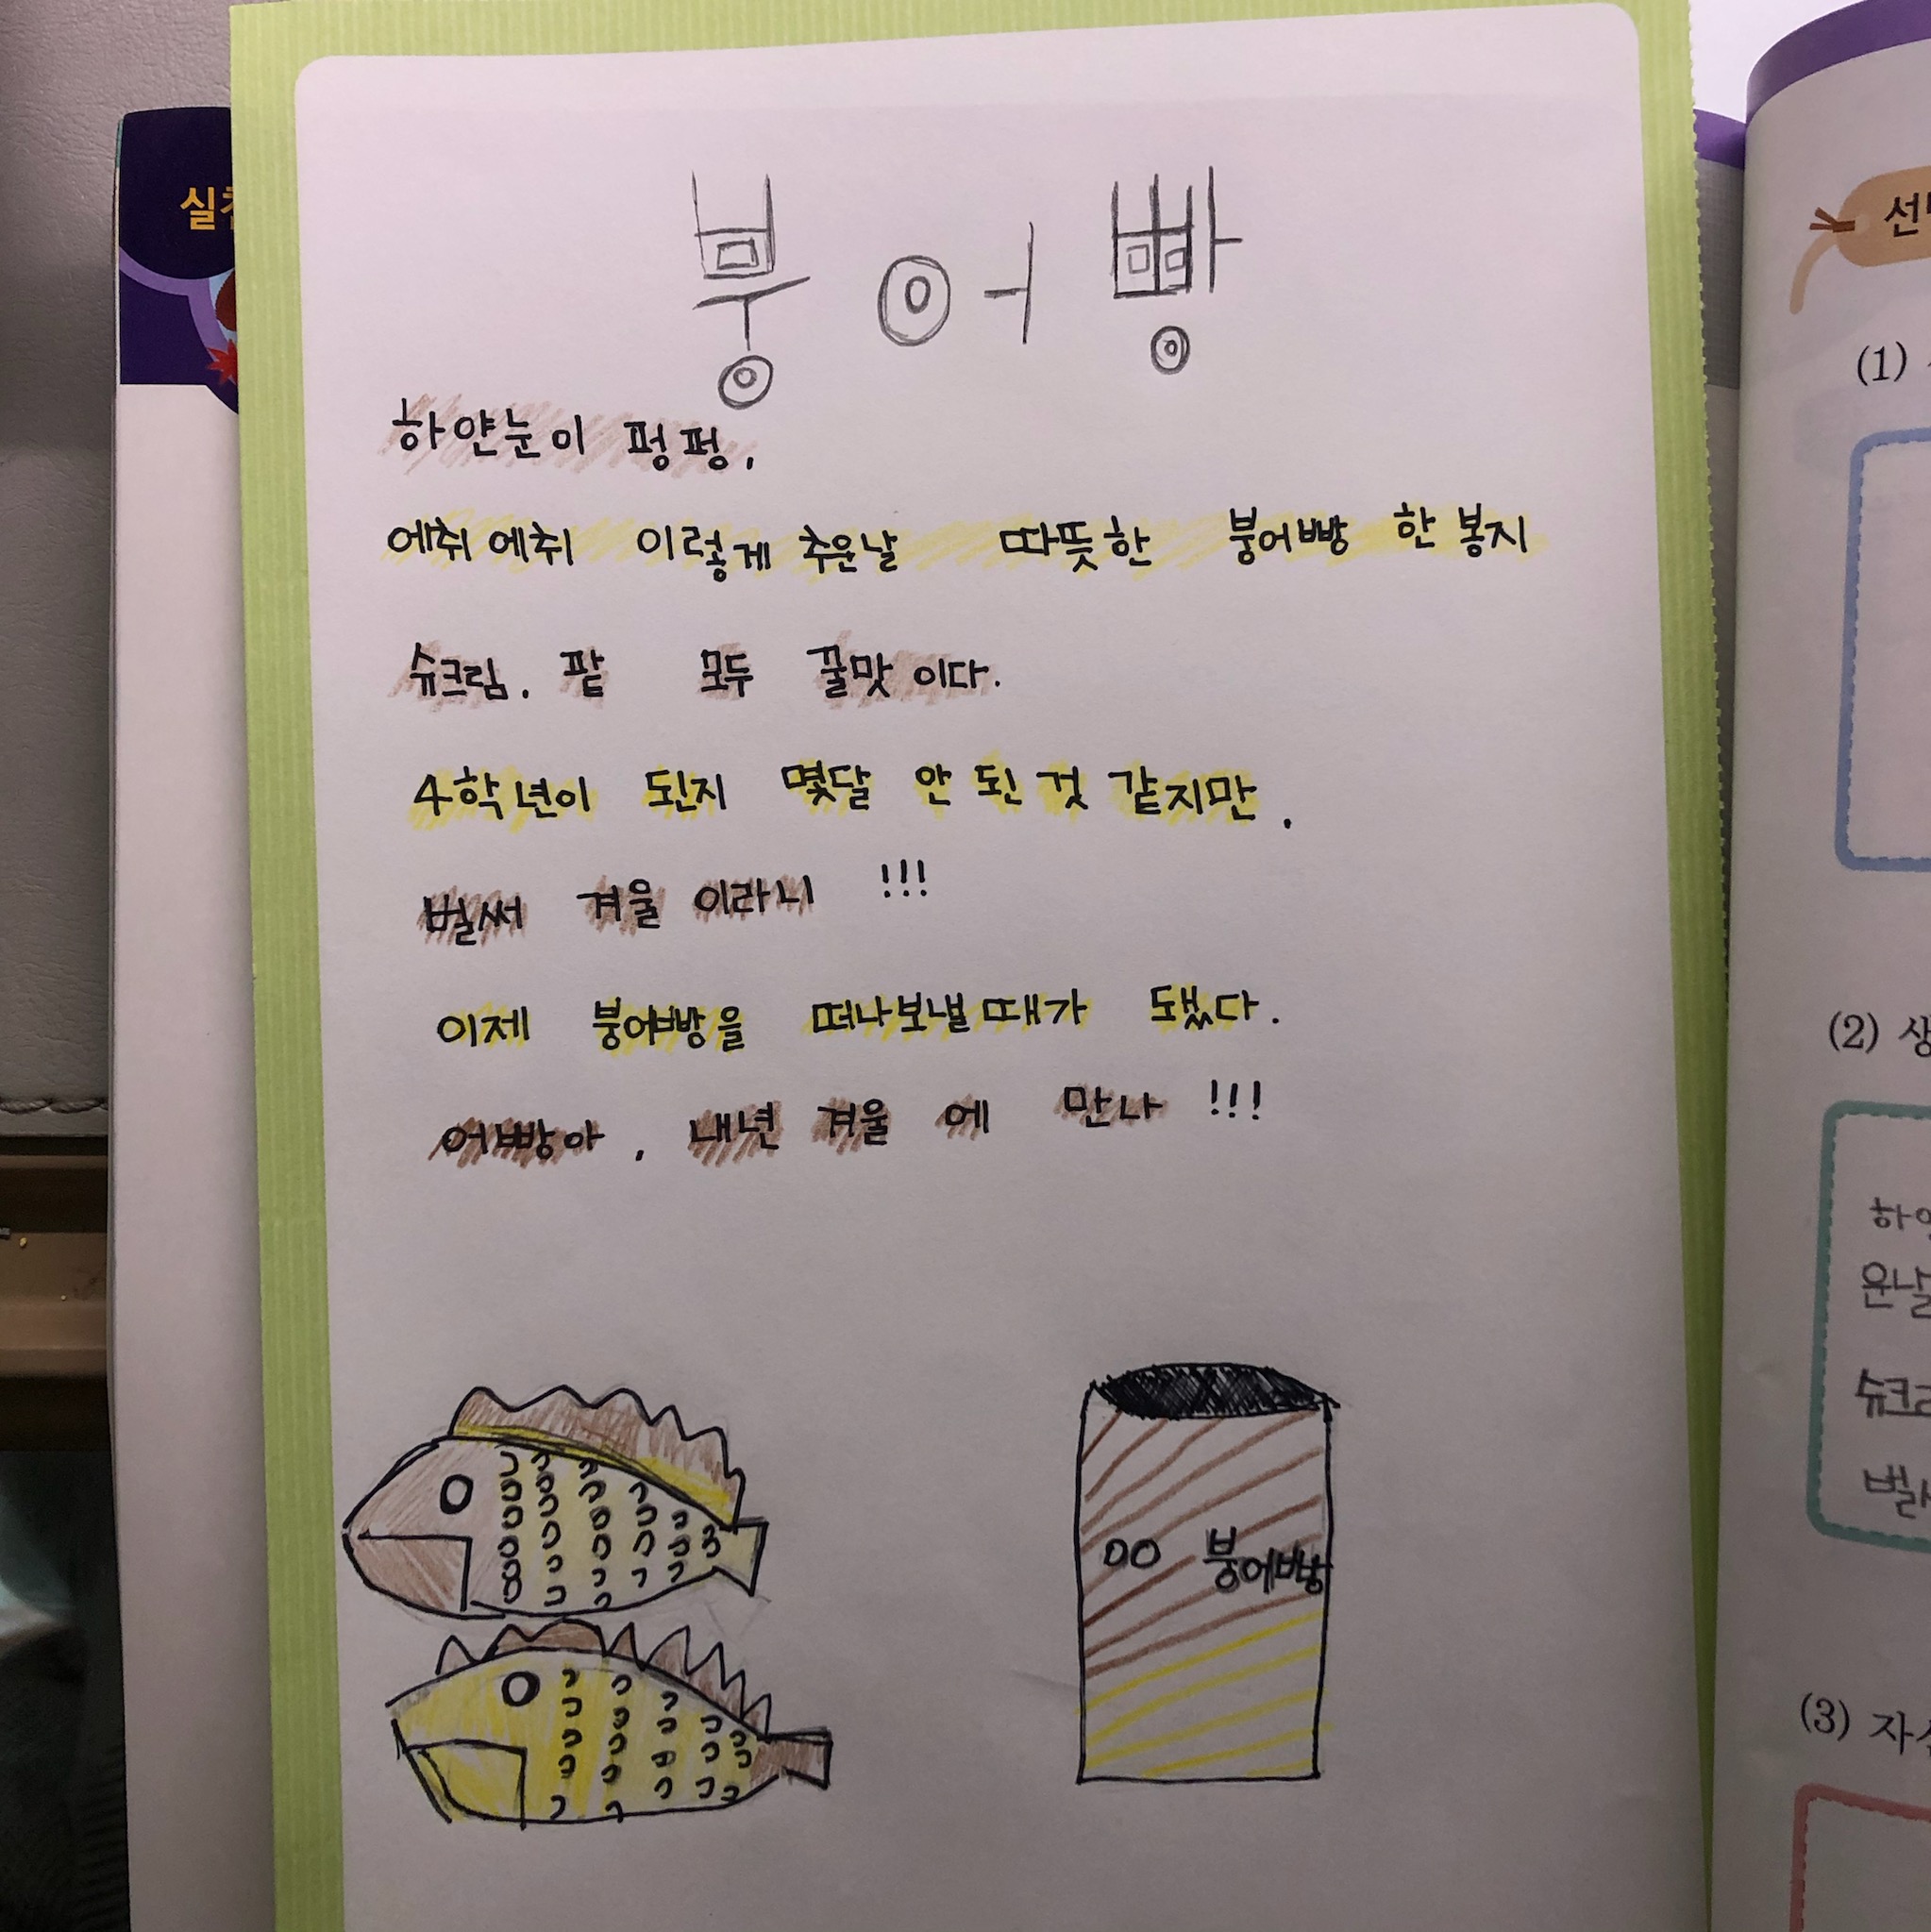 붕어빵
하얀눈이 펑펑,
에취 에취 이렇게 추운날 따뜻한 붕어빵 한 봉지
슈크림, 팥 모두 꿀맛 이다.
4학년이 된지 몇달 안 된 것 같지만,
벌써 겨울 이라니 !!!
이제 붕어빵을 떠나보낼때가 됐다.
어빵아, 내년 겨울 에 만나 !!!
붕어빵
(1)
(2)
(3)